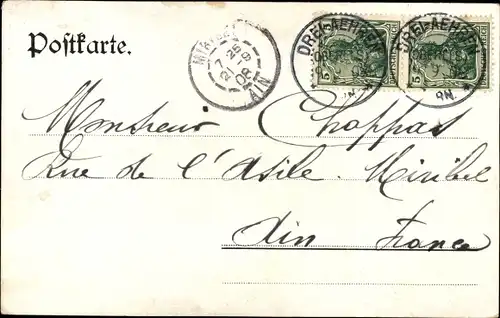 Postkarte.
MIRIBEL
7 25
21 9
02
AIN
DREI-AEHREN
DREI-AEHREN
5 5
Monsieur Chappas
Rue de l'Asile. Miribel
Ain France